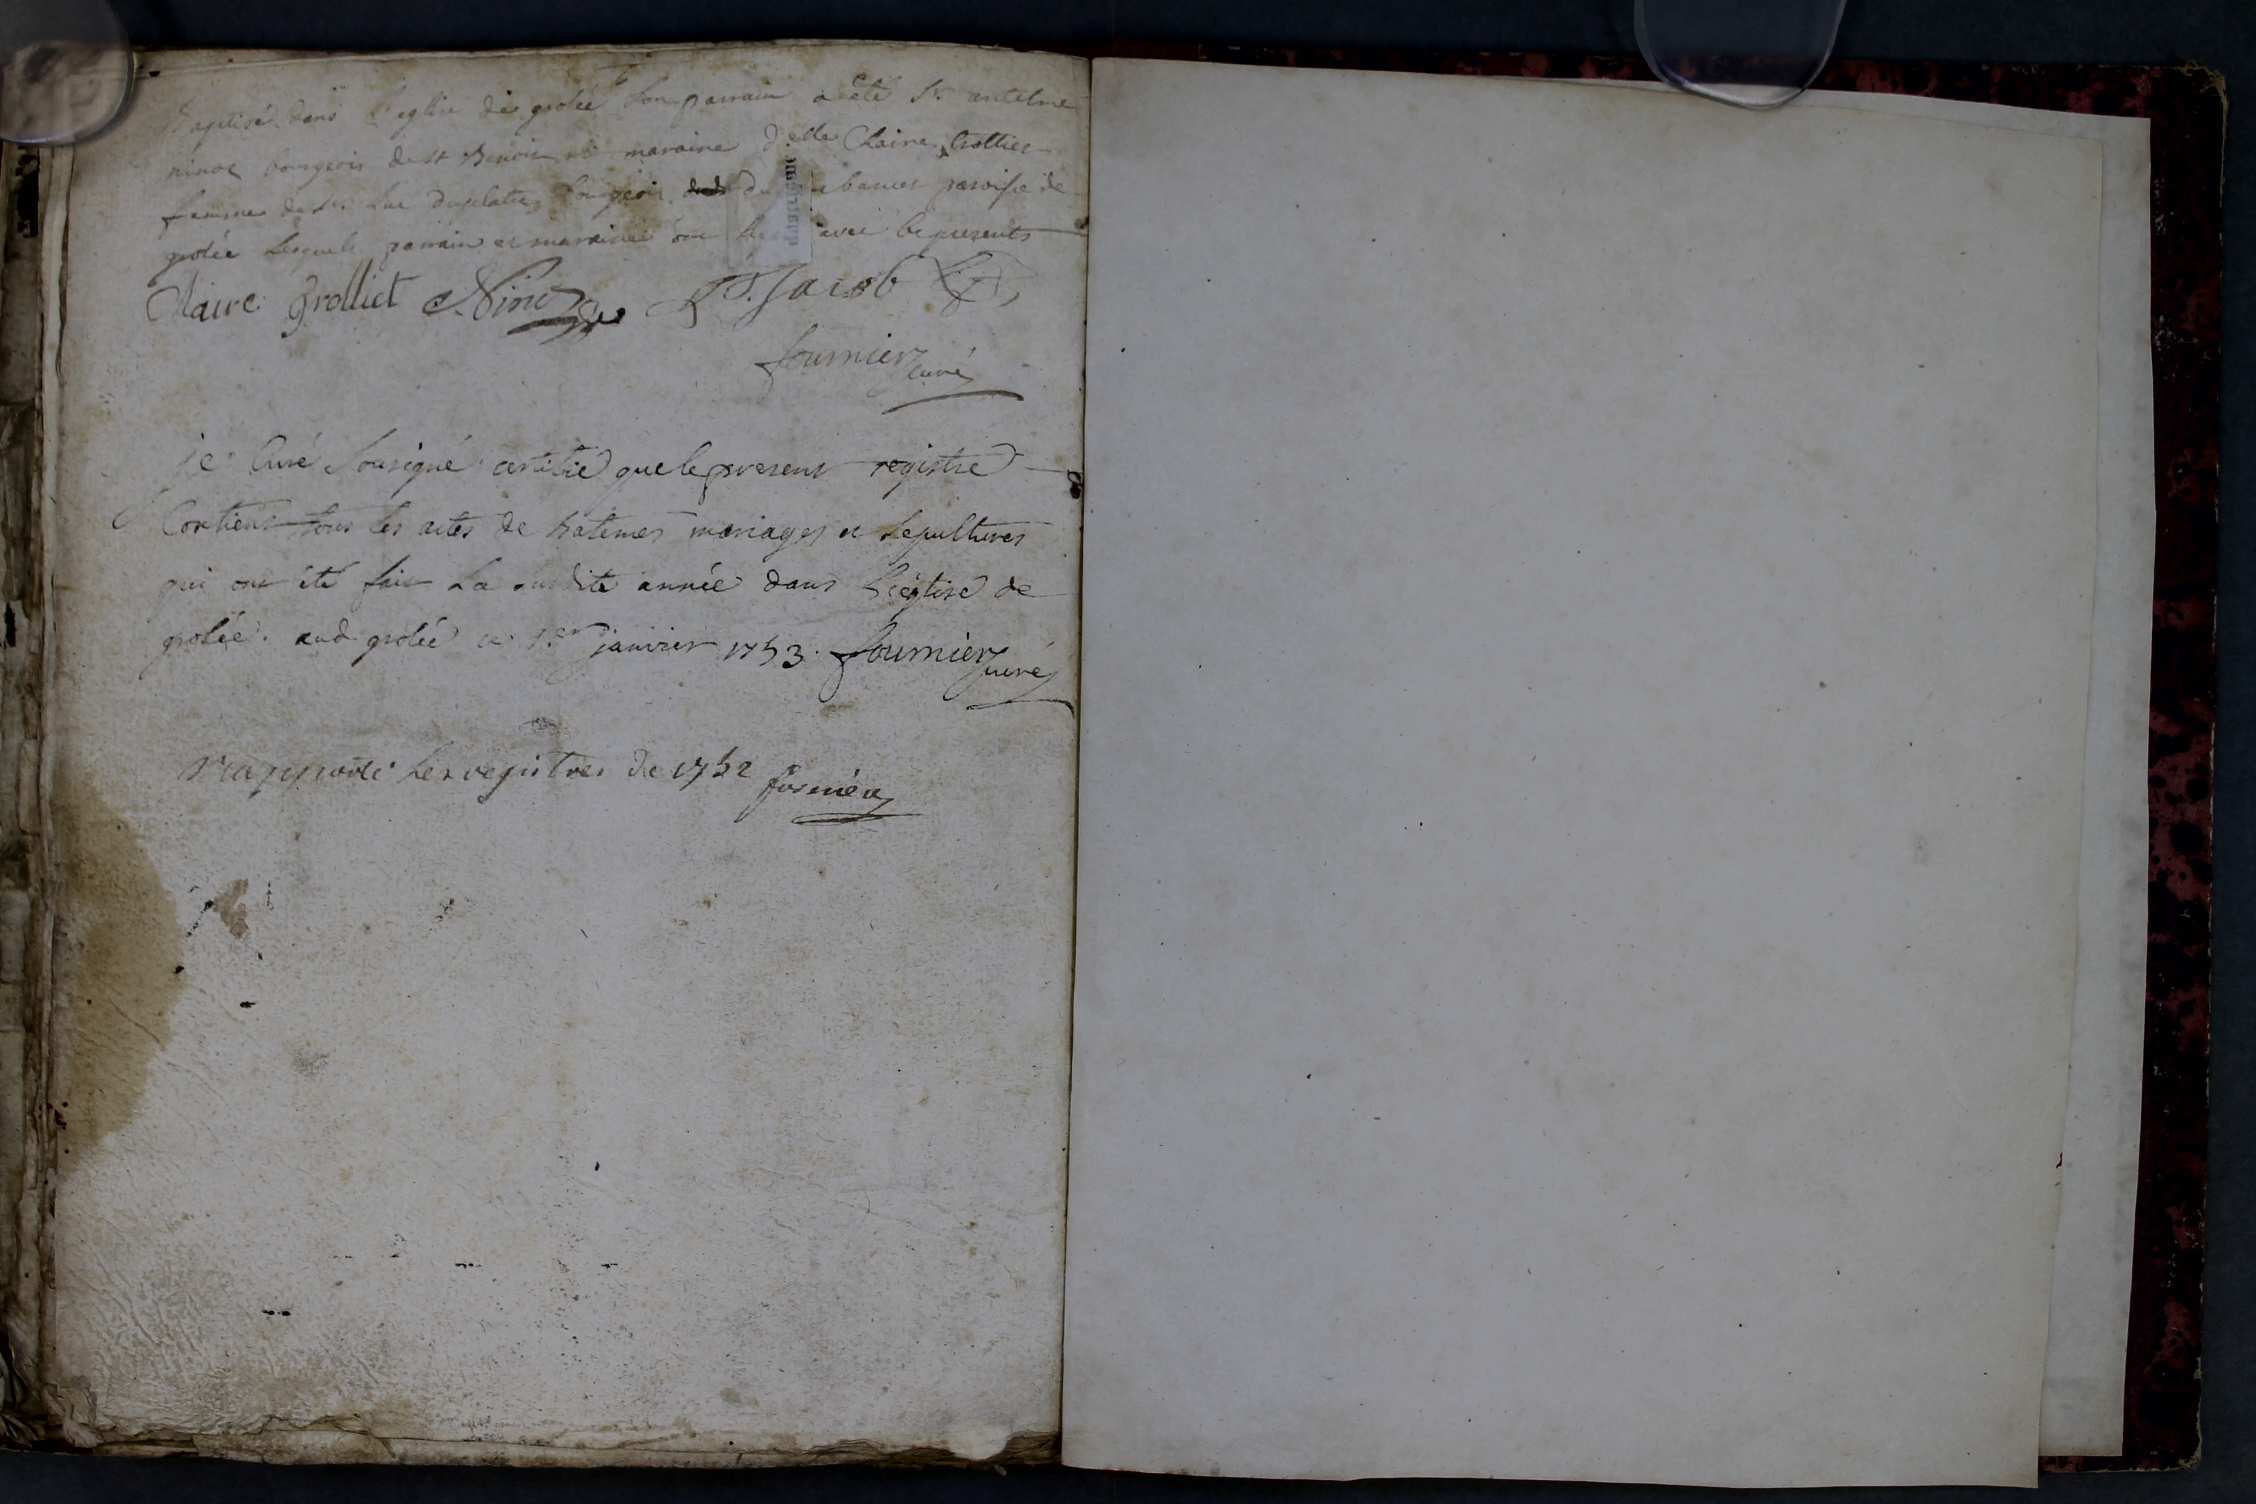 Baptisé dans l'eglise de grolée son parrain a été Sr antelme
ninot bourgeois de st Benoit et maraine Delle Claire trollier
femme de Sr Luc Duplatre bourgeois du parroisse de
grolée lesquels parrain et maraine ont avec les presents
Claire Trolliet Ninot Jacob
fournier curé
je Curé sousigné certifie que le present registre
Contient tous les actes de batemes mariages et sepultures
qui ont été fait la susdite année dans l'église de
grolée. aud grolée ce 1er janvier 1753. fournier curé
rapporté les registres de 1752